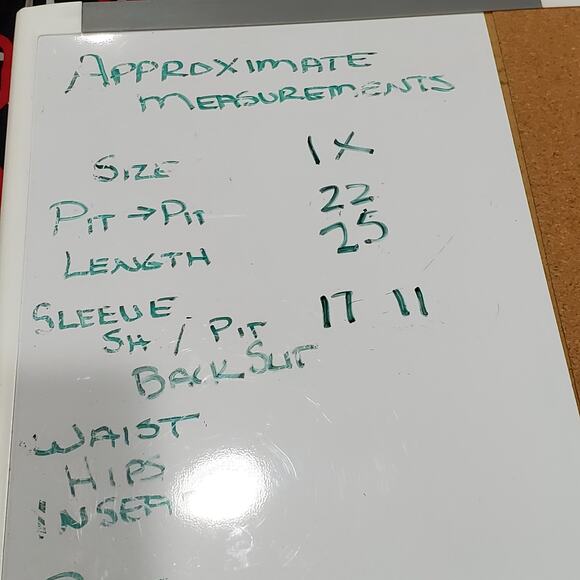 APPROXIMATE
MEASUREMENTS
SIZE 1X
PIT → PIT 22
LENGTH 25
SLEEVE
SH / PIT 17 11
BACK SLIT
WAIST
HIPS